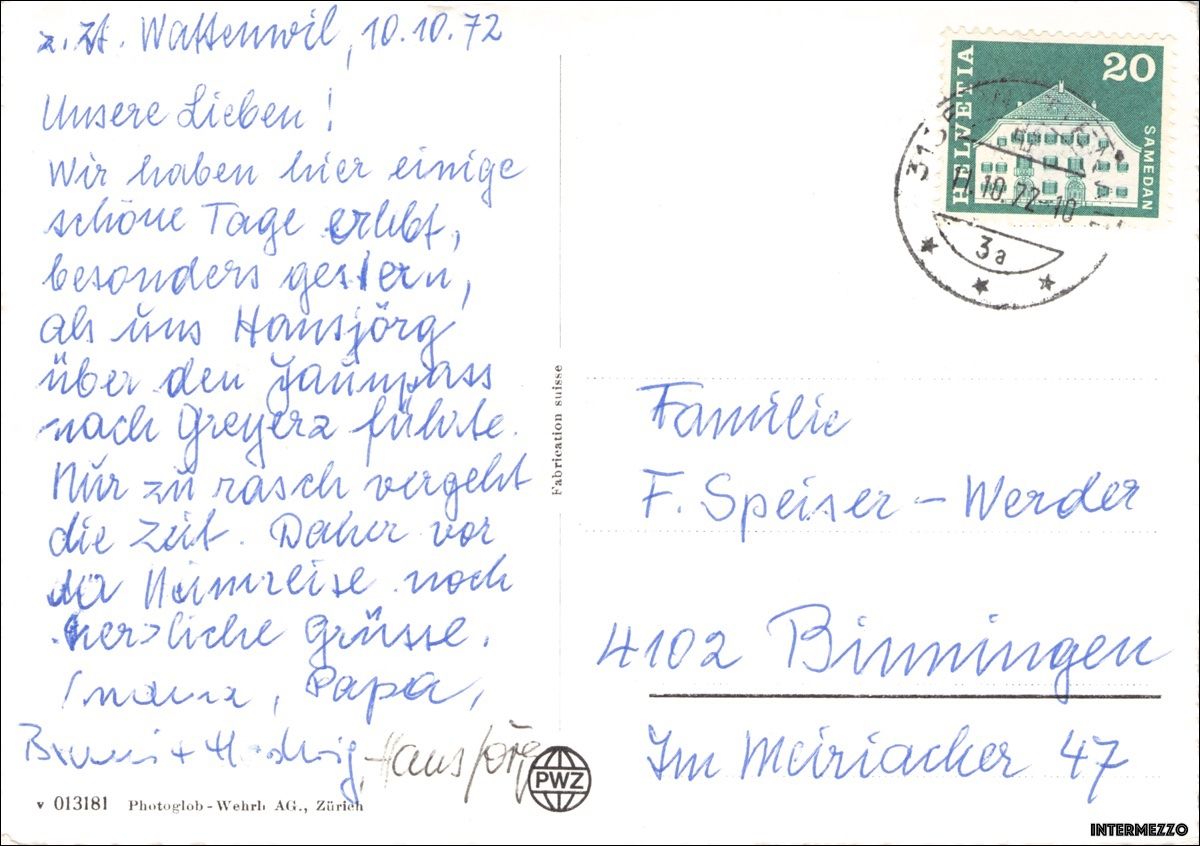 z. Zt. Wattenwil, 10.10.72
Unsere Lieben!
Wir haben hier einige
schöne Tage erlebt,
besonders gestern,
als uns Hansjörg
über den Jaunpass
nach Greyerz führte.
Nur zu rasch vergeht
die Zeit. Daher vor
der Heimreise noch
herzliche Grüsse.
Mama, Papa,
+ Hedwig, Hansjörg
v 013181 Photoglob-Wehrli AG., Zürich
Fabrication suisse
PWZ
HELVETIA
20
SAMEDAN
11.10.72-10
3a
Familie
F. Speiser - Werder
4102 Binningen
Im Meiriacker 47
INTERMEZZO